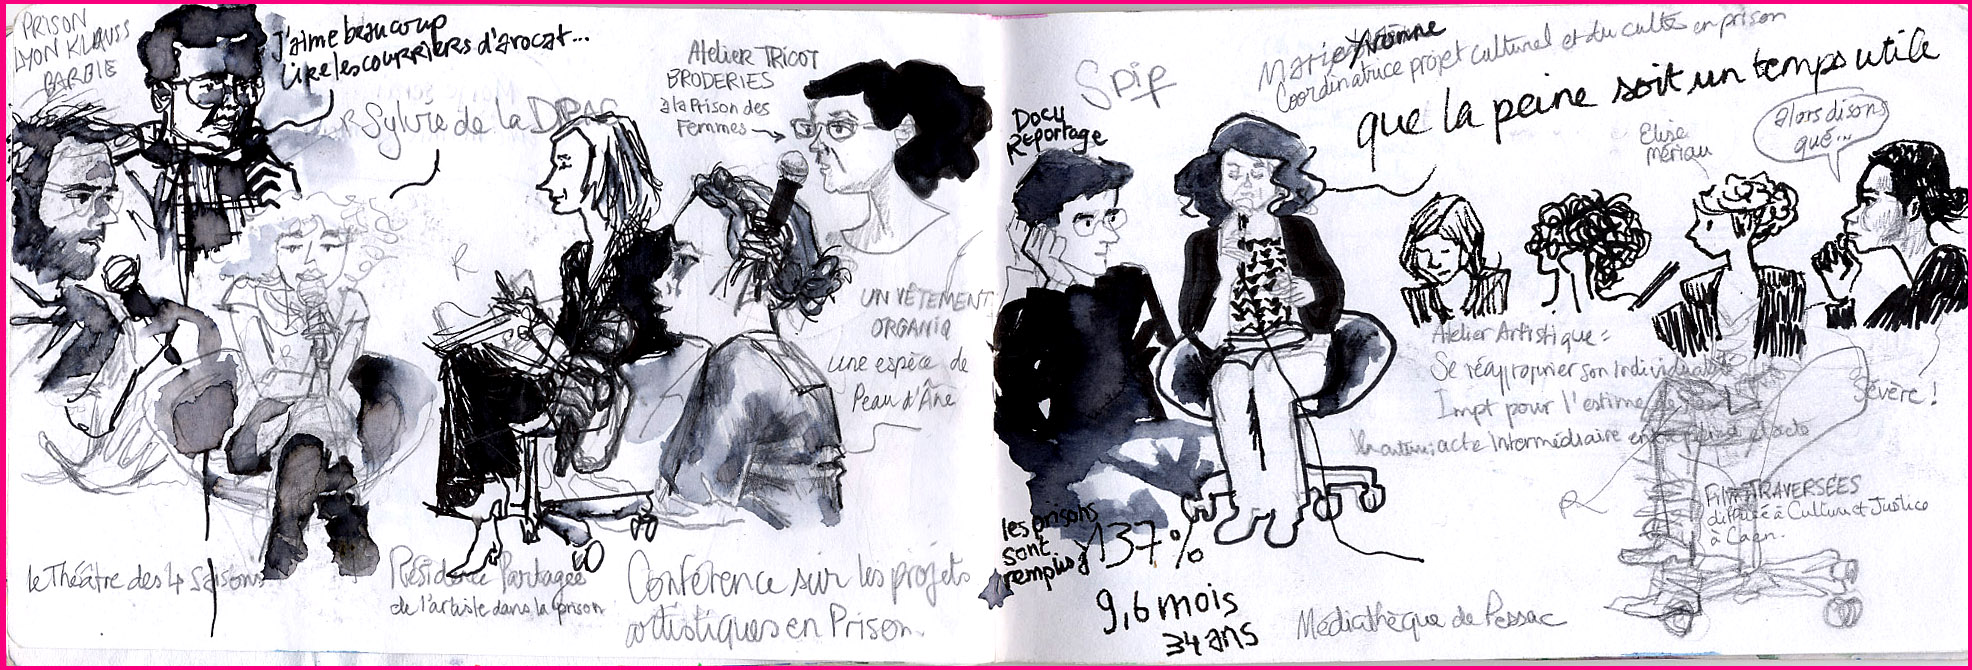 PRISON
LYON KLAUSS
BARBIE
J'aime beaucoup
Lire les courriers d'avocat...
Sylvie de la DRAC
Atelier TRICOT
BRODERIES
à la Prison des
Femmes
UN VÊTEMENT
ORGANIQ
une espèce de
Peau d'Âne
le Théâtre des 4 Saisons
Résidence Partagée
de l'artiste dans la prison
Conférence sur les projets
artistiques en Prison.
Spip
Docu
Reportage
Marie Yvonne
Coordinatrice projet culturel et du culte en prison
que la peine soit un temps utile
Elise
Mériau
alors disons
que...
Atelier Artistique :
Se réapproprier son Individualité
Impt pour l'estime de
acte Intermédiaire
Sévère !
Film TRAVERSÉES
diffusé à Culture et Justice
à Caen.
les prisons
sont
remplis à
137%
9,6 mois
34 ans
Médiathèque de Pessac